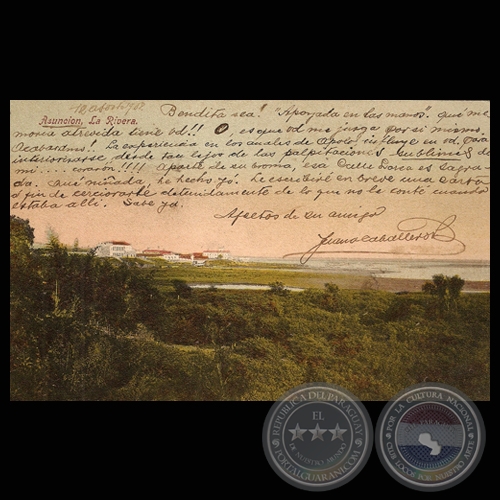 Asuncion, La Rivera.
Bendita sea! "Apoyada en las manos". qué me
moria atrevida tiene vd!! O, es que vd me juzga por si mismo.
Acabaramos! La experiencia en los anales de Apolo, influye en vd. para
interiorizarse, desde tan lejos de las palpitaciones sublimes de
mi.... corazón!!!! Aparte de su broma, esa es sagra
da. Qué he hecho yó. Le escribiré en breve una carta
á fin de cerciorarle detenidamente de lo que no le conté cuando
estaba allí. Sabe yá.
Afectos de su amigo
Juan Caballero
REPUBLICA DEL PARAGUAY
EL
PORTALGUARANI.COM